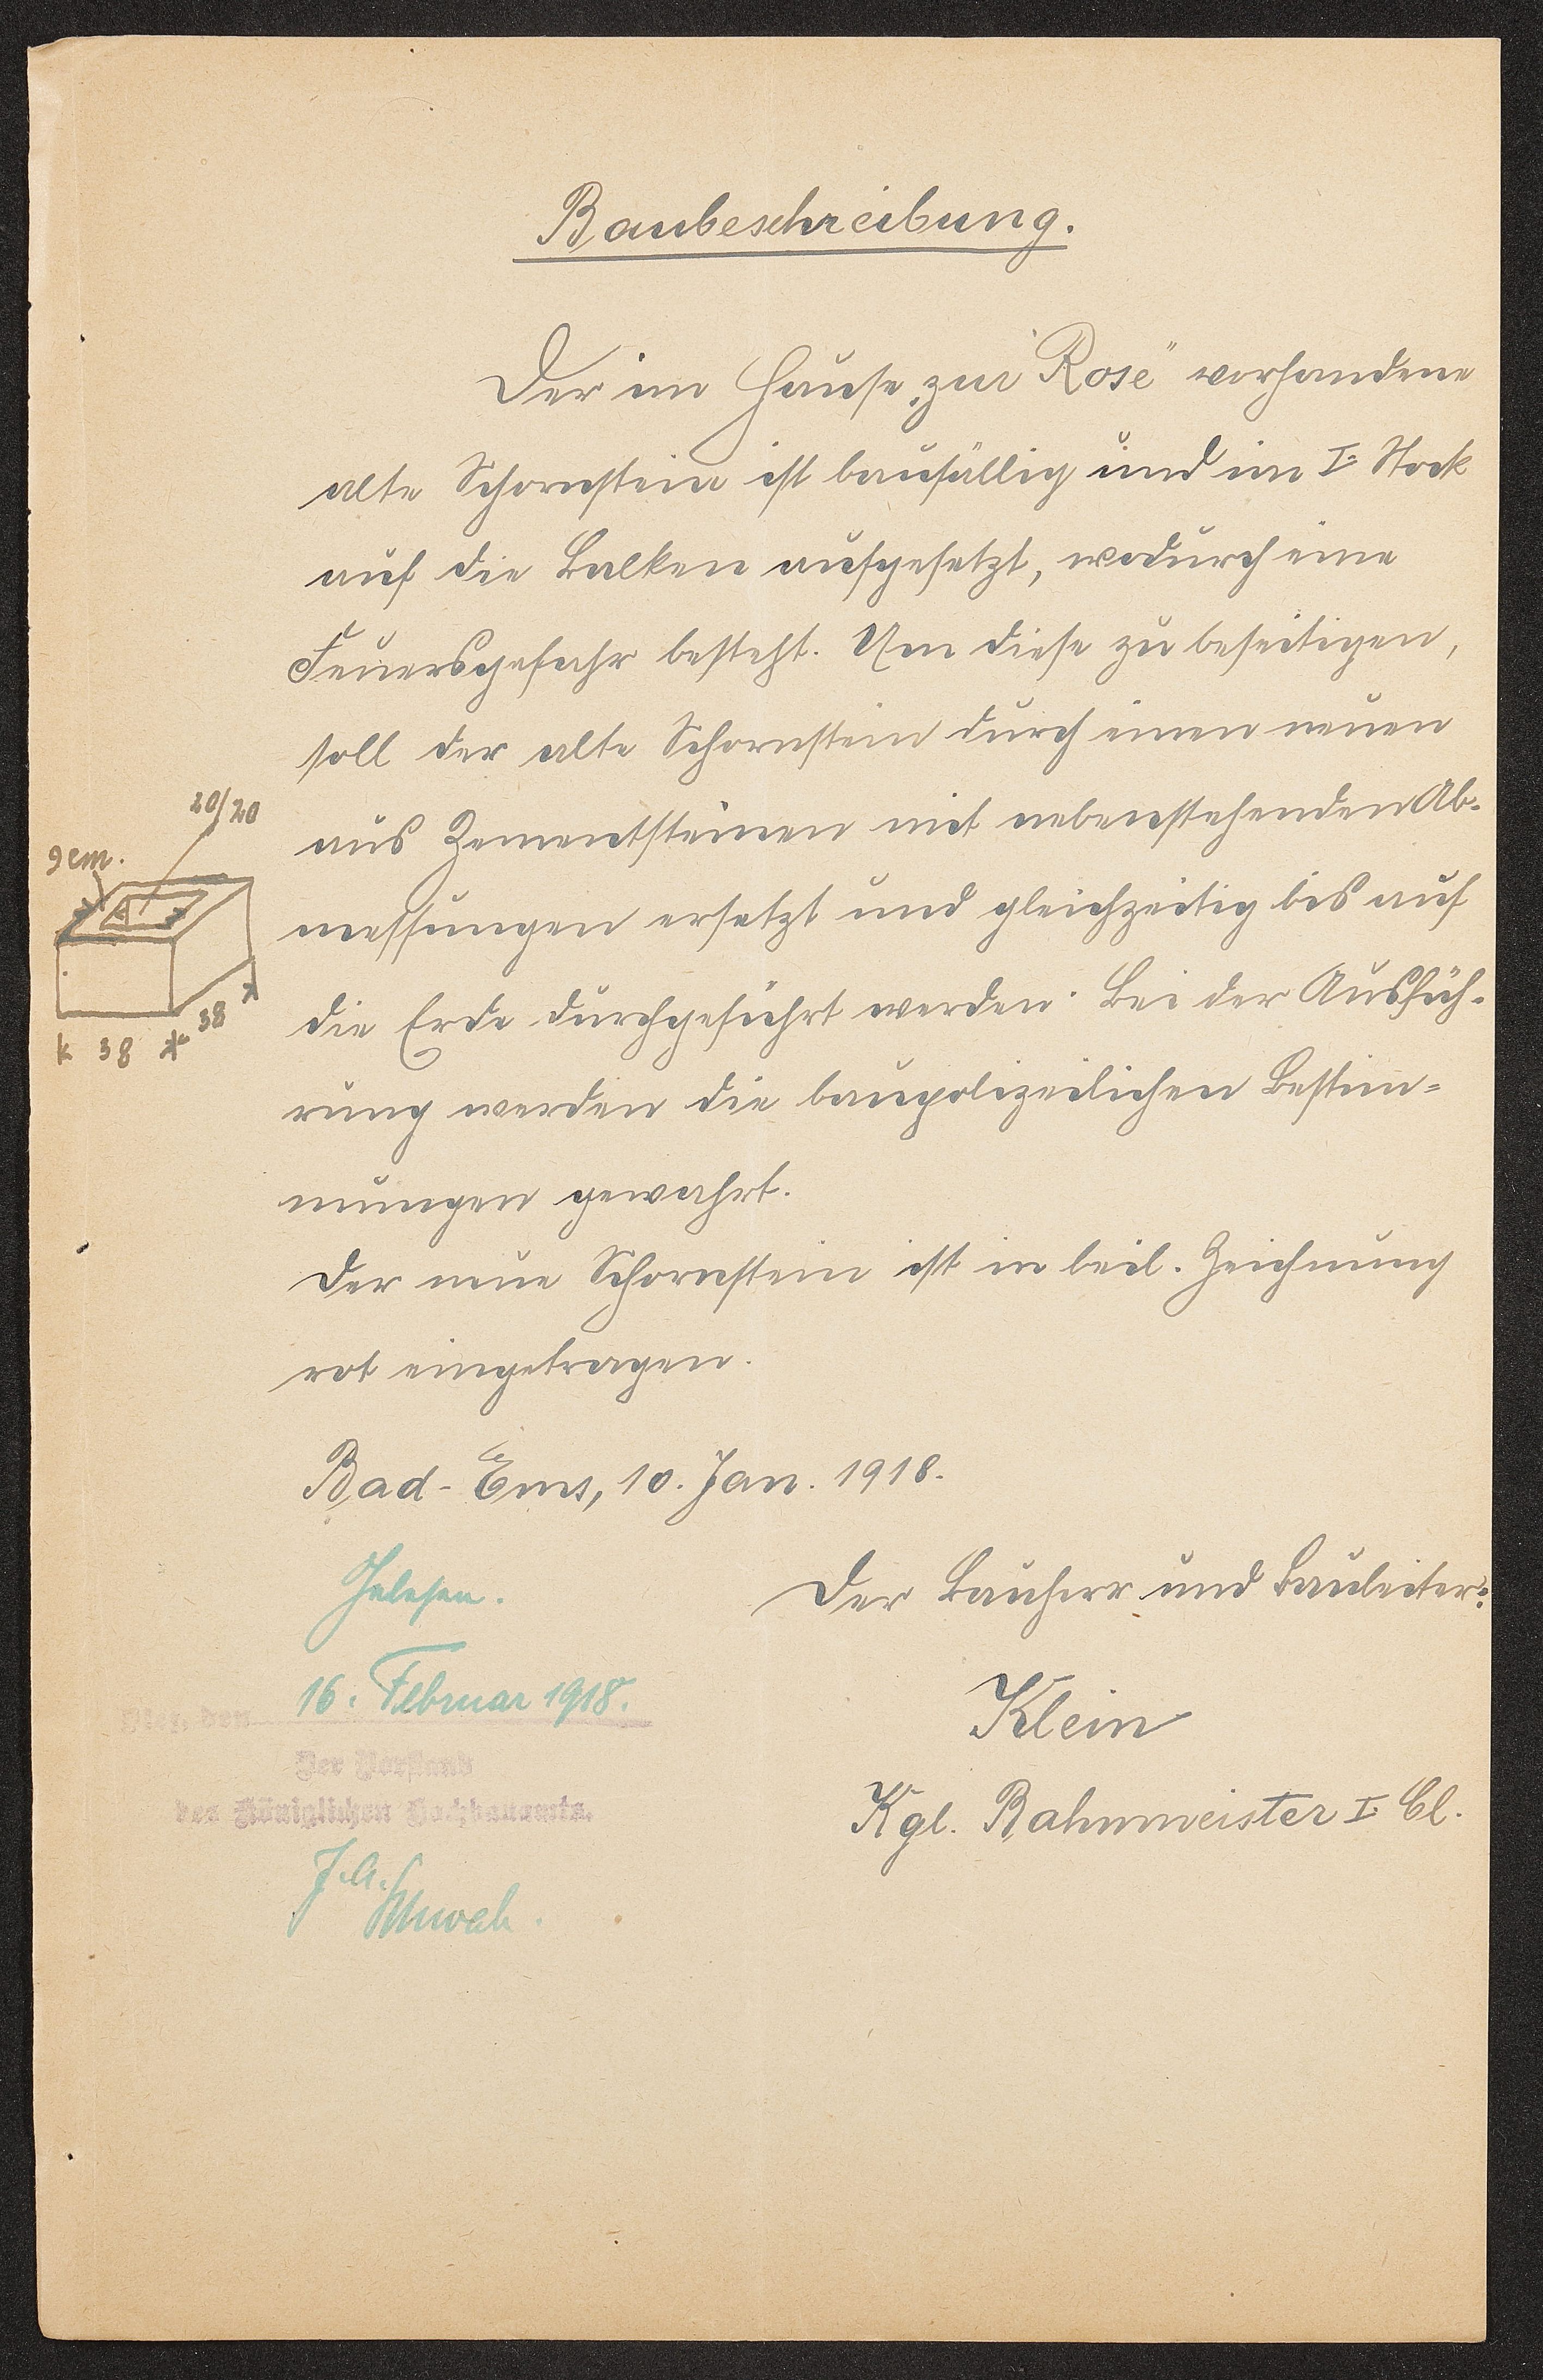 Baubeschreibung.
Der im Hause „zur Rose“ vorhandene
alte Schornstein ist baufällig und im I. Stock
auf die Balken aufgesetzt, wodurch eine
Feuersgefahr besteht. Um diese zu beseitigen,
soll der alte Schornstein durch einen neuen
aus Zementsteinen mit nebenstehenden Ab-
messungen ersetzt und gleichzeitig bis auf
die Erde durchgeführt werden. Bei der Ausfüh-
rung werden die baupolizeilichen Bestim-
mungen gewahrt.
Der neue Schornstein ist in beil. Zeichnung
rot eingetragen.
20/20
9 cm.
38
38
Bad-Ems, 10. Jan. 1918.
Der Bauherr und Bauleiter:
Klein
Kgl. Bahnmeister I. Cl.
Gelesen.
Diez, den 16. Februar 1918.
Der Vorstand
des Königlichen Hochbauamts.
J.A.